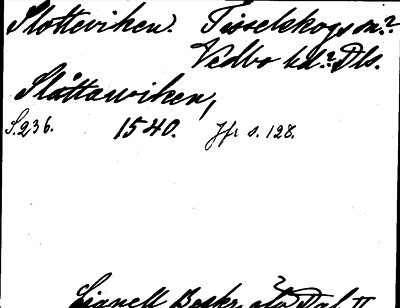 Slotteviken. Tisselskogs sn.?
Vedbo hd.? Dls.
Slåttawiken,
S.236. 1540. Jfr s. 128.
Lignell Beskr. öfv. Dal II